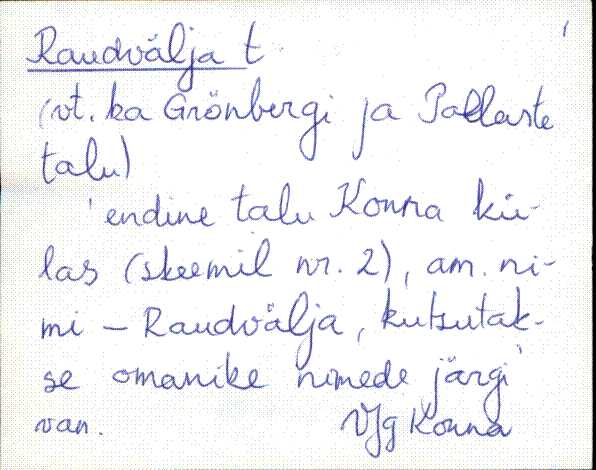 Raudvälja t.
(vt. ka Grönbergi ja Pallaste
talu)
'endine talu Konna kü-
las (skeemil nr. 2), am. ni-
mi – Raudvälja, kutsutak-
se omanike nimede järgi'
van. VJg Konna